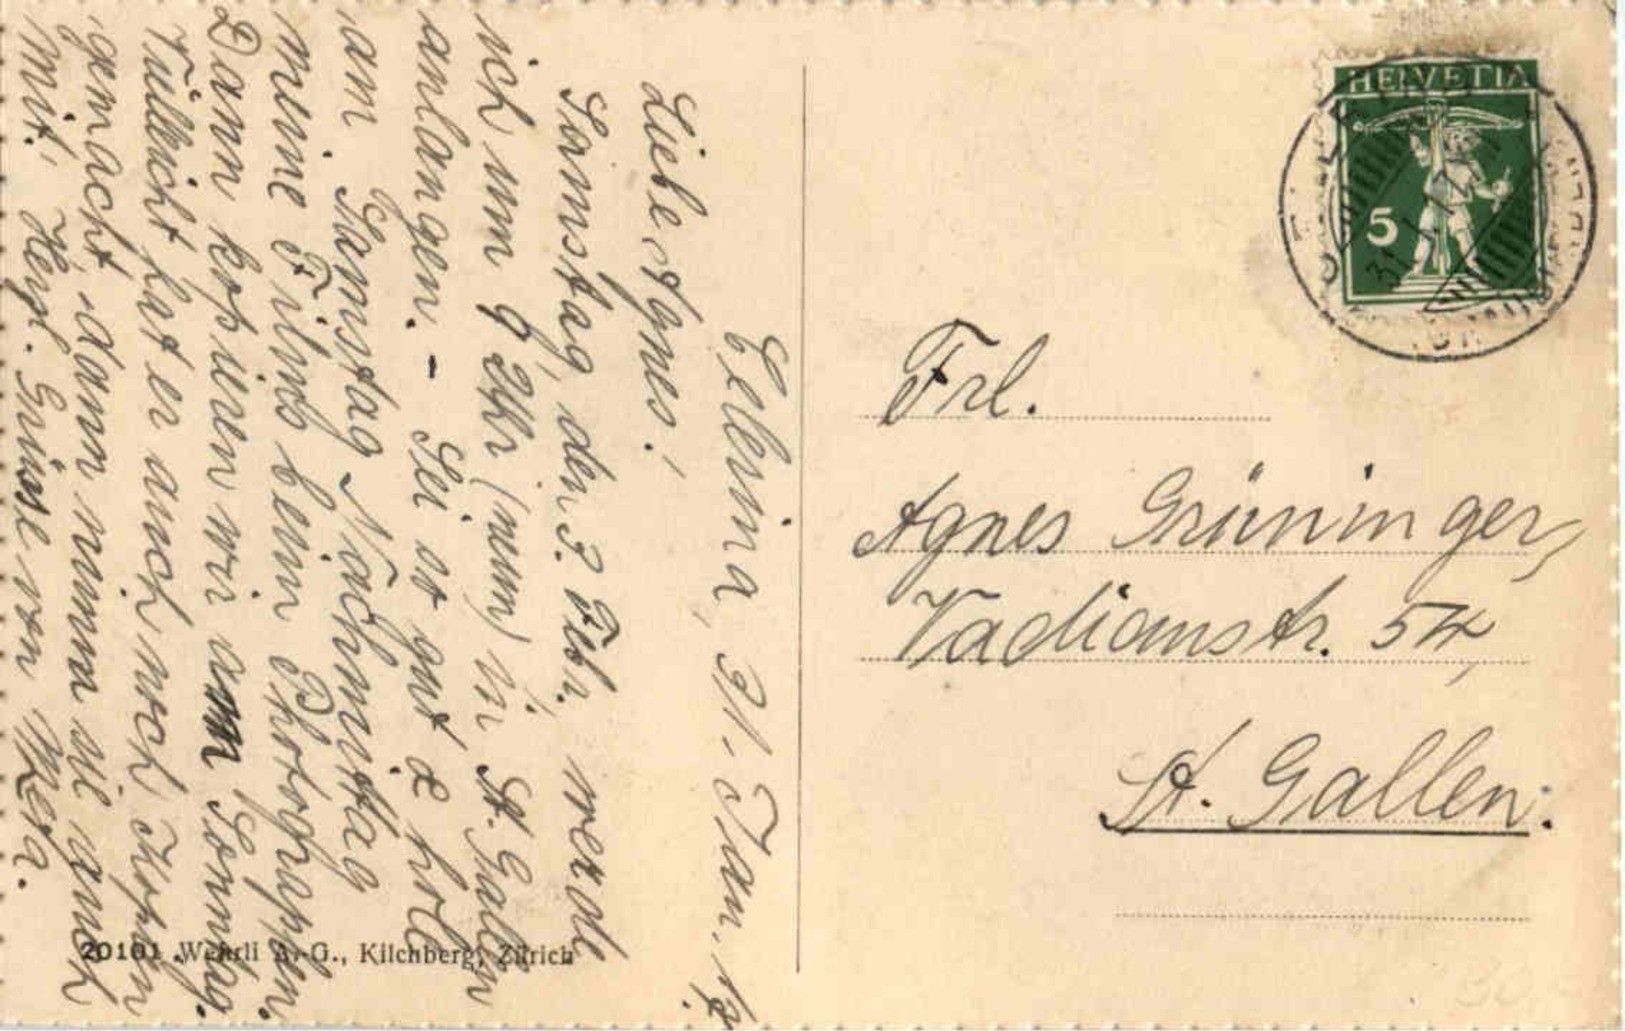 Celerina, 31. Jan. 17
Liebe Agnes!
Samstag, den 3. Feb., werde
ich um 9 Uhr (neun) in St. Gallen
anlangen. - Sei so gut & hole
am Samstag Nachmittag
meine Films beim Photographen.
Dann kopieren wir am Sonntag.
Vielleicht hat er auch noch Kopien
gemacht, dann nimm sie auch
mit. Herzl. Grüsse von Meta.
20101 Wehrli A.-G., Kilchberg, Zürich
HELVETIA
5
31. I. 17
Frl.
Agnes Grüninger,
Vadianstr. 54,
St. Gallen.